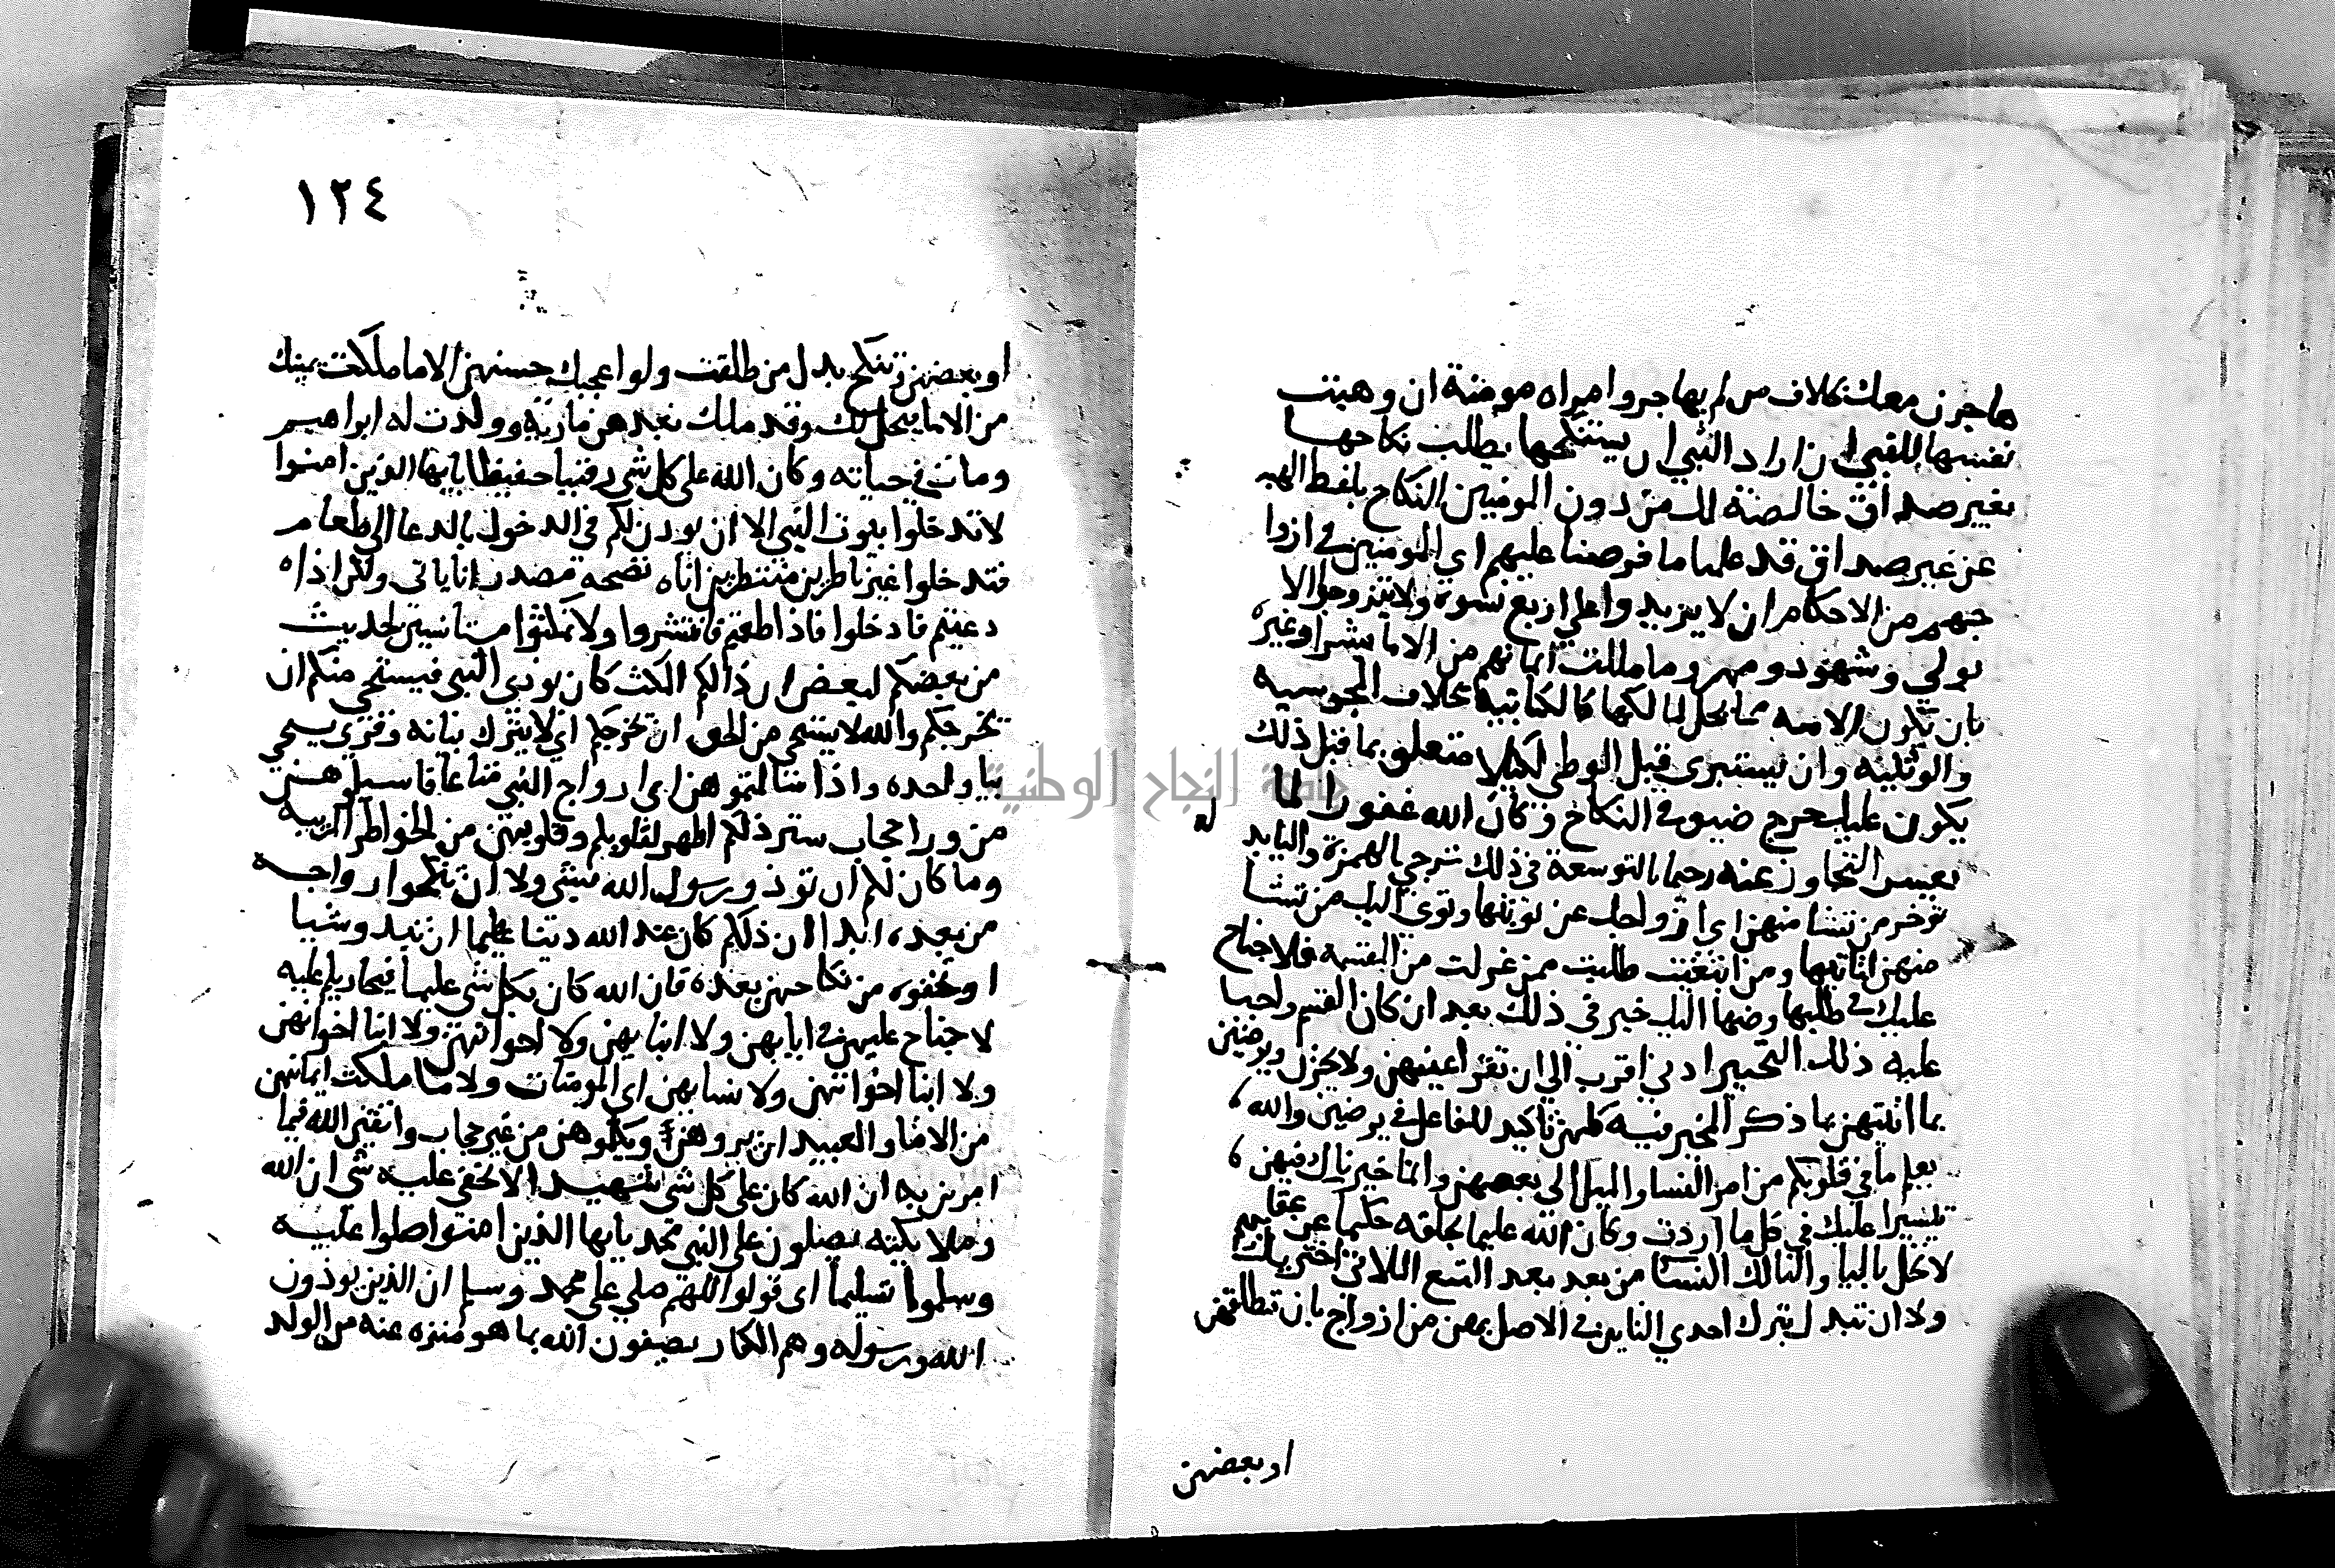 هاجرن معك بخلاف من لم يهاجروا امراه مومنة ان وهبت
نفسها للنبي ان اراد النبي ان يستنكحها يطلب نكاحها
بغير صداق خالصة لك من دون المومنين النكاح بلفظ الهبه
عن غير صداق قد علمنا ما فرضنا عليهم اي المومنين في ازوا
جهم من الاحكام ان لا يزيدوا علي اربع نسوه ولا يتزوجوا الا
بولي وشهود ومهر وما ملكت ايمانهم من الاما بشرا وغيره
بان تكون الامه مما تحل لمالكها كالكتابيه بخلاف المجوسيه
والوثنيه وان تستبرى قبل الوطي لكيلا متعلق بما قبل ذلك
يكون عليك حرج ضيق في النكاح وكان الله غفورا لما
له
يعسر التحاوز عنه رحيما بالتوسعة في ذلك ترجي بالهمزة واليابد
توخر من تشا منهن اي ازواجك عن نوبتها وتوي اليك من تشا
منهن فتاتيها ومن ابتغيت طلبت ممن عزلت من القسمه فلا جناح
عليك في طلبها وضمها اليك خير في ذلك بعد ان كان القسم واجبا
عليه ذلك التخيير ادني اقرب الي ان تقر اعينهن ولا يحزن ويرضين
بما اتيتهن بما ذكر المخير فيه كلهن تاكيد للفاعل في يرضين والله
يعلم ما في قلوبكم من امر النسا والميل الي بعضهن وانما خيرناك فيهن
تيسيرا عليك في كل ما اردت وكان الله عليما بخلقه حكيما عن عقابهم
لا تحل باليا والتا لك النسا من بعد بعد التسع اللاتي اخترنك
ولا ان تبدل بترك احدي التاين في الاصل بهن من ازواج بان تطلقهن
او بعضهن
١٢٤
او بعضهن وتنكح بدل من طلقت ولو اعجبك حسنهن الا ما ملكت يمينك
من الاما فتحل لك وقد ملك بعدهن مارية وولدت له ابراهيم
ومات في حياته وكان الله على كل شي رقيبا حفيظا يايها الذين امنوا
لا تدخلوا بيوت النبي الا ان يوذن لكم في الدخول بالدعا الي طعام
فتدخلوا غير ناظرين منتظرين اناه نضجه مصدر انا ياني ولكن اذا
دعيتم فادخلوا فاذا طعمتم فانتشروا ولا تمكثوا مستانسين لحديث
من بعضكم لبعض ان ذالكم المكث كان يوذي النبي فيستحي منكم ان
يخرجكم والله لا يستحي من الحق ان يخرجكم اي لا يترك بيانه وقري يستحي
بيا واحده واذا سالتموهن اي ازواج النبي متاعا فاسيلوهن
من ورا حجاب ستر ذلكم اطهر لقلوبكم وقلوبهن من الخواطر المريبه
وما كان لكم ان توذو رسول الله بشي ولا ان تنكحوا ازواجه
من بعده ابدا ان ذلكم كان عند الله دينا عظيما ان تبدو شيا
او تخفوه من نكاحهن بعده فان الله كان بكل شي عليما فيجازيكم عليه
لا جناح عليهن في ابايهن ولا ابنايهن ولا اخوانهن ولا ابنا اخوانهن
ولا ابنا اخواتهن ولا نسايهن اي المومنات ولا ما ملكت ايمانهن
من الاما والعبيد ان يروهن ويكلموهن من غير حجاب واتقين الله فيما
امرتن به ان الله كان على كل شي شهيدا لا يخفي عليه شي ان الله
وملايكته يصلون علي النبي محمد يايها الذين امنوا صلوا عليه
وسلموا تسليما اي قولوا اللهم صلي على محمد وسلم ان الذين يوذون
الله ورسوله وهم الكفار يصفون الله بما هو منزه عنه من الولد
جامعة النجاح الوطنية